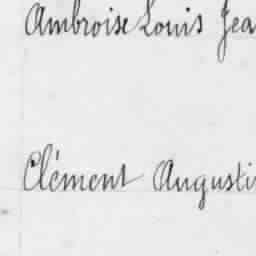 Ambroise Louis Jea
Clément Augusti